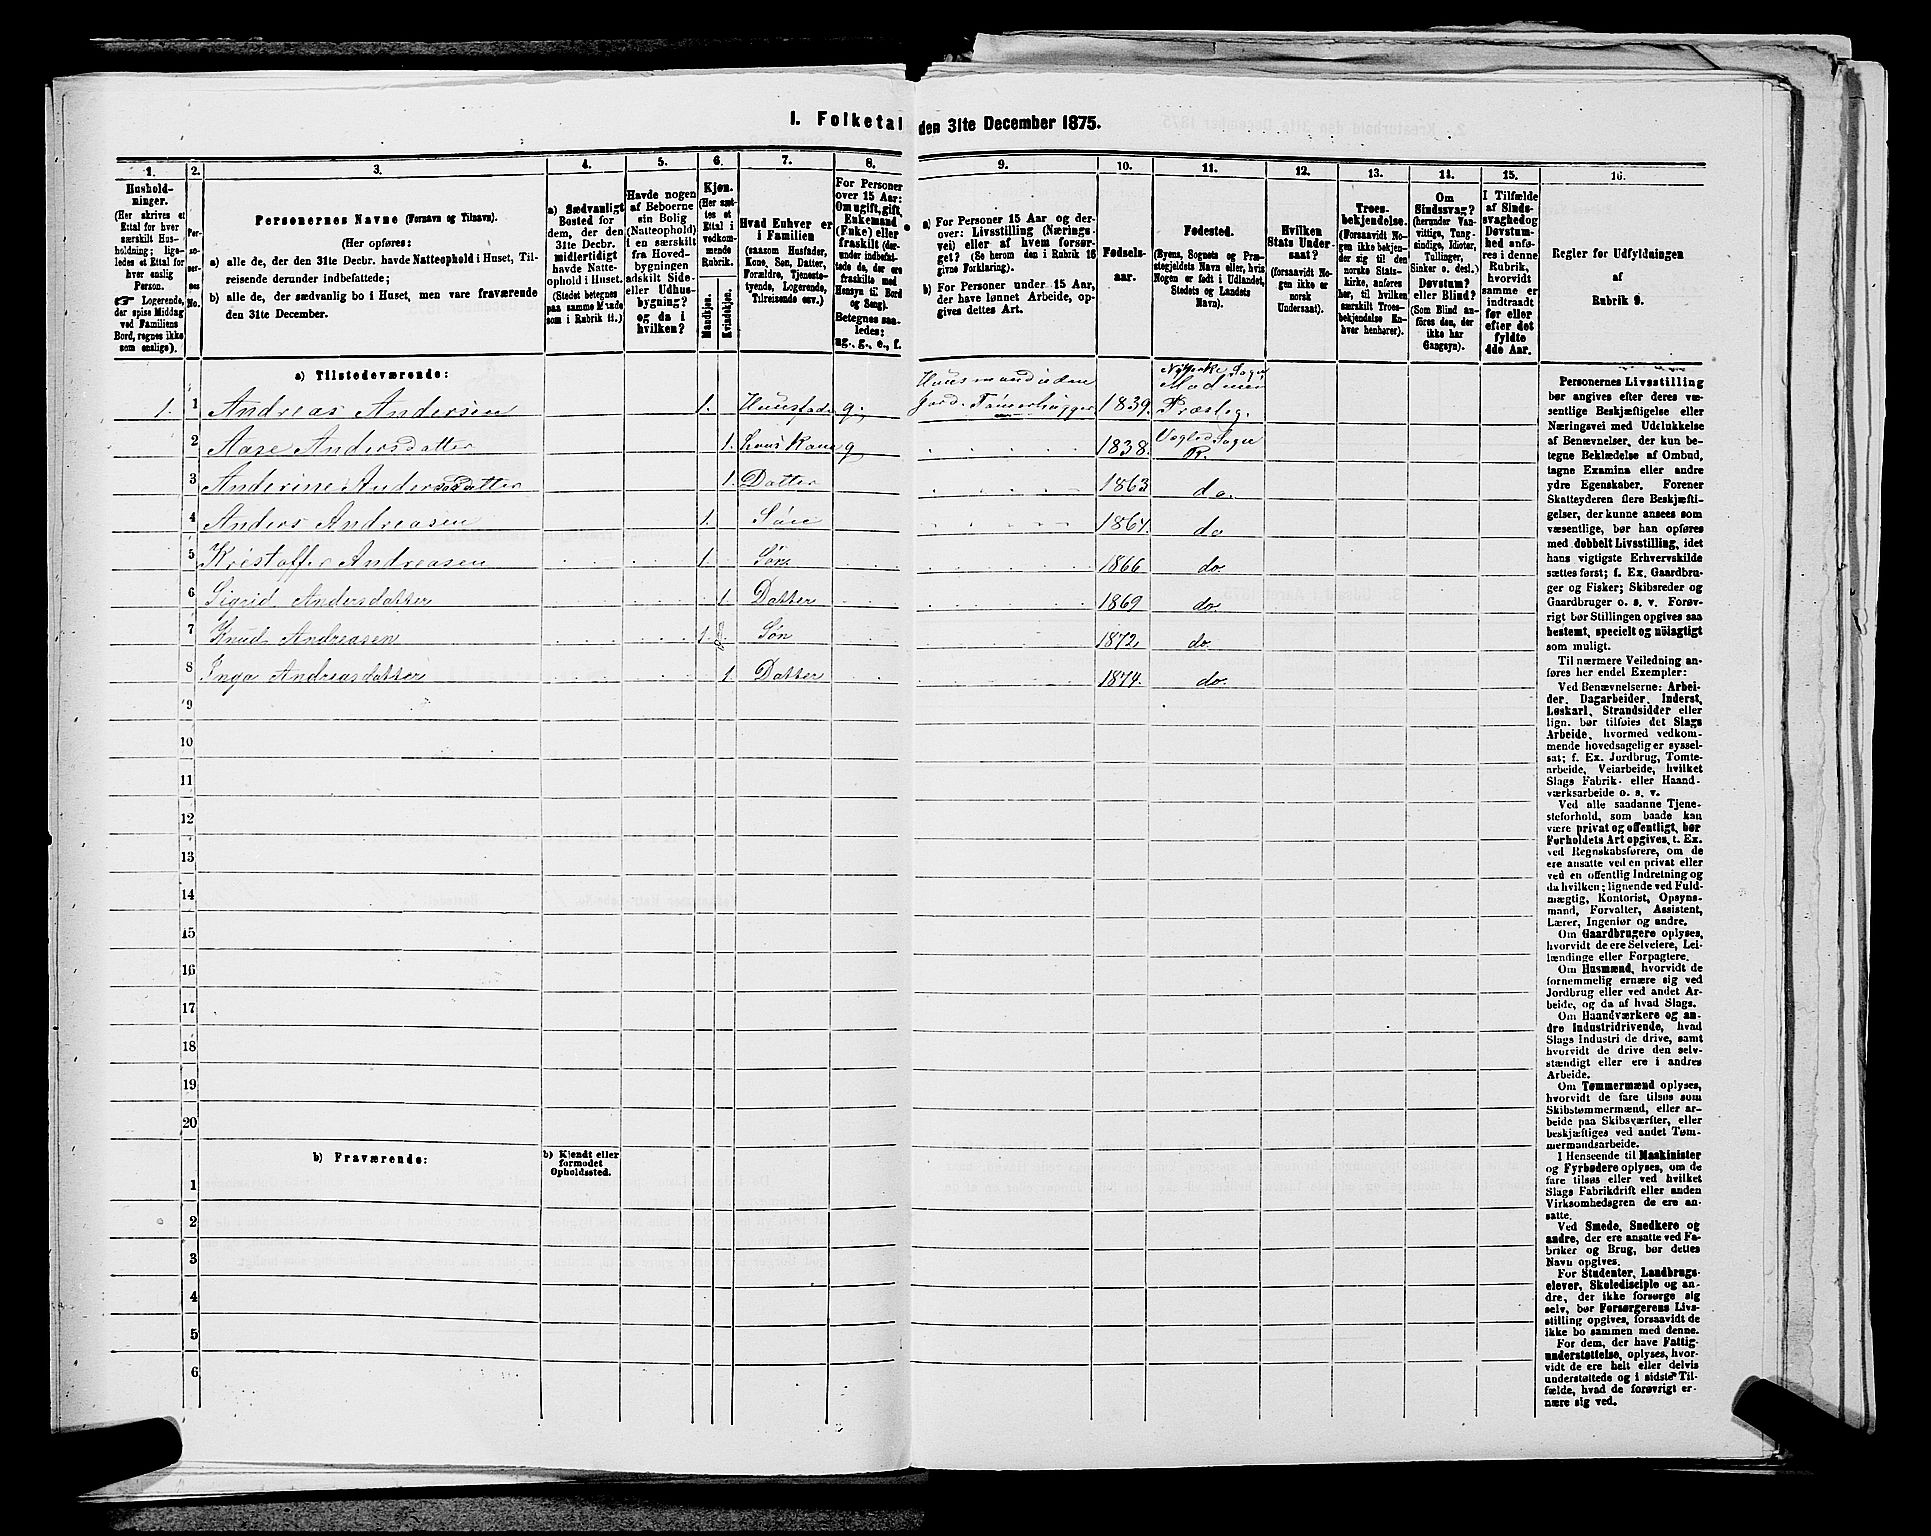 I. Folketal den 31te December 1875.
1. 2. 3. 4. 5. 6. 7. 8. 9. 10. 11. 12. 13. 14. 15. 16.
Hushold-
ninger.
(Her skrives et
Ettal for hver
særskilt Hus-
holdning; lige-
ledes et Ettal for
hver enslig
Person.
☞ Logerende,
der spise Middag
ved Familiens
Bord, regnes ikke
som enslige).
Per-
so-
ner-
nes
No.
Personernes Navne (Fornavn og Tilnavn).
(Her opføres:
a) alle de, der den 31te Decbr. havde Natteophold i Huset, Til-
reisende derunder indbefattede;
b) alle de, der sædvanlig bo i Huset, men vare fraværende
den 31te December.
a) Sædvanligt
Bosted for
dem, der den
31te Decbr.
midlertidigt
havde Natte-
ophold i Huset.
(Stedet betegnes
paa samme Maade
som i Rubrik 11.)
Havde nogen
af Beboerne
sin Bolig
(Natteophold)
i en særskilt
fra Hoved-
bygningen
adskilt Side-
eller Udhus-
bygning?
og da i
hvilken?
Kjøn.
(Her sæt-
tes et
Ettal i
vedkom-
mende
Rubrik.
Mandkjøn.
Kvindekjøn.
Hvad Enhver er
i Familien
(saasom Husfader,
Kone, Søn, Datter,
Forældre, Tjeneste-
tyende, Logerende,
Tilreisende osv.)
For Personer
over 15 Aar:
Om ugift, gift,
Enkemand
(Enke) eller
fraskilt (der-
under indbefat-
tede de, der ere
fraskilte med
Hensyn til Bord
og Seng).
Betegnes saa-
ledes:
ug., g., e., f.
a) For Personer 15 Aar og der-
over: Livsstilling (Nærings-
vei) eller af hvem forsør-
get? (Se herom den i Rubrik 16
givne Forklaring).
b) For Personer under 15 Aar,
der have lønnet Arbeide, op-
gives dettes Art.
Fødsels-
aar.
Fødested.
(Byens, Sognets og Præ-
stegjeldets Navn eller, hvis
Nogen er født i Udlandet,
Stedets og Landets
Navn).
Hvilken
Stats Under-
saat?
(forsaavidt No-
gen ikke er
norsk
Undersaat).
Troes-
bekjendelse.
(Forsaavidt No-
gen ikke bekjen-
der sig til den
norske Stats-
kirke, anføres
her, til hvilken
særskilt Troes-
bekjendelse En-
hver henhører).
Om
Sindssvag?
(herunder Van-
vittige, Tung-
sindige, Idioter,
Tullinger,
Sinker o. desl.)
Døvstum?
eller Blind?
(Som Blind an-
føres den, der
ikke har
Gangsyn).
I Tilfælde
af Sinds-
svaghed og
Døvstum-
hed anfø-
res i denne
Rubrik,
hvorvidt
samme er
indtraadt
før eller
efter det
fyldte
4de Aar.
Regler for Udfyldningen
af
Rubrik 9.
a) Tilstedeværende:
1. 1 Andreas Andersen 1. g. Huusmand uden Jord. 1839. Præsteg.
2 Aase Andersdatter 1. g 1838. Sogn
3 Anderine Andersdatter 1. Datter 1863 do.
4 Anders Andreasen 1. Søn 1864. do
5 Kristoffer Andreasen 1. Søn 1866 do.
6 Sigrid Andersdatter 1. Datter 1869 do.
7 Knud Andreasen 1. Søn 1872. do.
8 Inga Andreasdatter 1. Datter 1874. do.
9
10
11
12
13
14
15
16
17
18
19
20
b) Fraværende:
b) Kjendt eller
formodet
Opholdssted.
1
2
3
4
5
6
Personernes Livsstilling
bør angives efter deres væ-
sentlige Beskjæftigelse eller
Næringsvei med Udelukkelse
af Benævnelser, der kun be-
tegne Beklædelse af Ombud,
tagne Examina eller andre
ydre Egenskaber. Forener
Skatteyderen flere Beskjæfti-
gelser, der kunne ansees som
væsentlige, bør han opføres
med dobbelt Livsstilling, idet
hans vigtigste Erhvervskilde
sættes først; f. Ex. Gaardbru-
ger og Fisker; Skibsreder og
Gaardbruger o. s. v. Forøv-
rigt bør Stillingen opgives saa
bestemt, specielt og nøiagtigt
som muligt.
Til nærmere Veiledning an-
føres her endel Exempler:
Ved Benævnelserne: Arbei-
der, Dagarbeider, Inderst,
Løskarl, Strandsidder eller
lign. bør tilføies det Slags
Arbeide, hvormed vedkom-
mende hovedsagelig er syssel-
sat; f. Ex. Jordbrug, Tomte-
arbeide, Veiarbeide, hvilket
Slags Fabrik- eller Haand-
værksarbeide o. s. v.
Ved alle saadanne Tjene-
steforhold, som baade kan
være privat og offentligt, bør
Forholdets Art opgives, t. Ex.
ved Regnskabsførere, om de
ere ansatte ved en privat eller
ved en offentlig Indretning og
da hvilken; lignende ved Fuld-
mægtig, Kontorist, Opsyns-
mand, Forvalter, Assistent,
Lærer, Ingeniør og andre.
Om Gaardbrugere oplyses,
hvorvidt de ere Selveiere, Lei-
lændinge eller Forpagtere.
Om Husmænd, hvorvidt de
fornemmelig ernære sig ved
Jordbrug eller ved andet Ar-
beide, og da af hvad Slags.
Om Haandværkere og an-
dre Industridrivende, hvad
Slags Industri de drive, samt
hvorvidt de drive den selv-
stændigt eller ere i andres
Arbeide.
Om Tømmermænd oplyses,
hvorvidt de fare tilsøs som
Skibstømmermænd, eller ar-
beide paa Skibsværfter, eller
beskjæftiges ved andet Tøm-
mermandsarbeide.
I Henseende til Maskinister
og Fyrbødere oplyses, om de
fare tilsøs eller ved hvilket
Slags Fabrikdrift eller anden
Virksomhedsgren de ere an-
satte.
Ved Smede, Snedkere og
andre, der ere ansatte ved Fa-
briker og Brug, bør dettes
Navn opgives.
For Studenter, Landbrugs-
elever, Skoledisciple og an-
dre, der ikke forsørge sig
selv, bør Forsørgerens Livs-
stilling opgives, forsaavidt de
ikke bo sammen med denne.
For dem, der have Fattig-
understøttelse, oplyses, hvor-
vidt de ere helt eller delvis
understøttede og i sidste Til-
fælde, hvad de forøvrigt er-
nære sig ved.